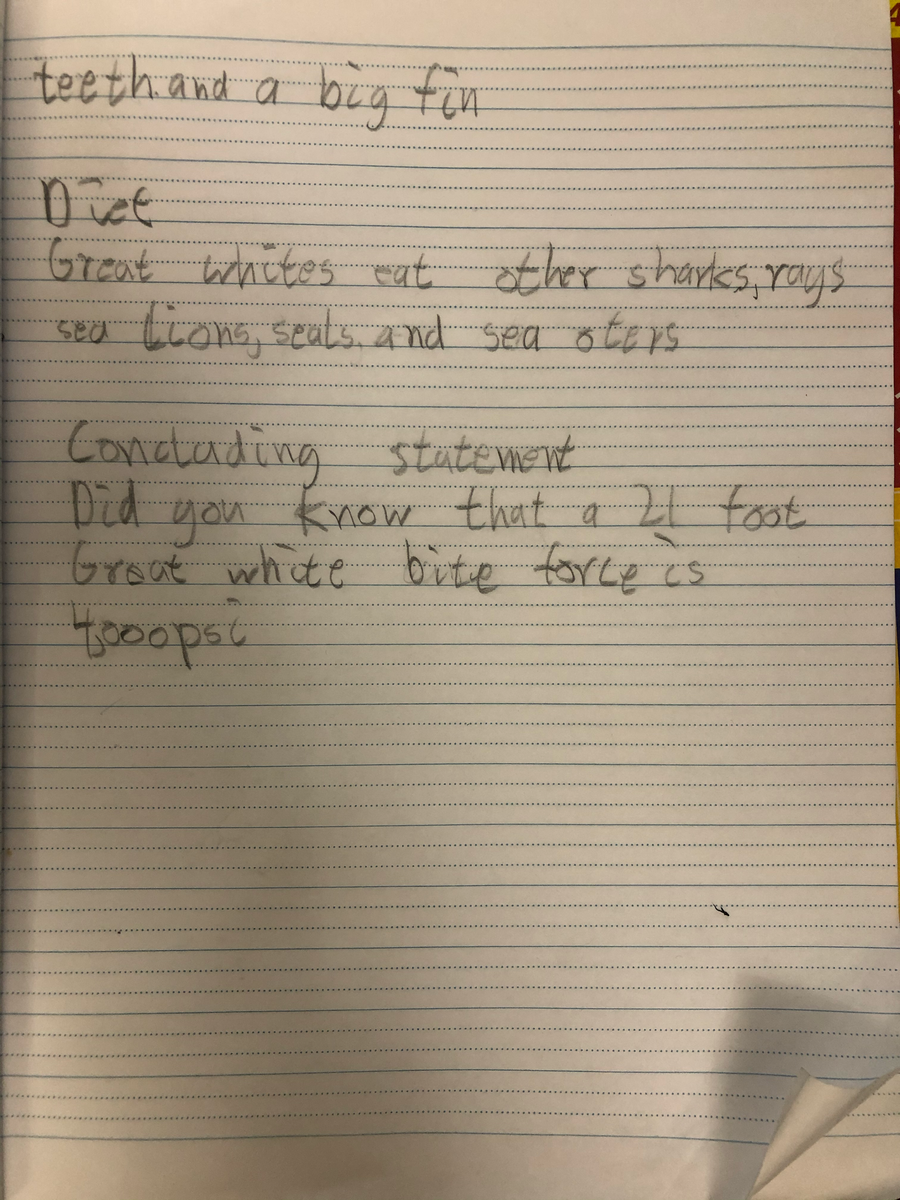 teeth.and a big fin
Diet
Great whites eat other sharks, rays
sea lions, seals. and sea oters
Concluding statement
Did you know that a 21 foot
Great white bite force is
4,000psi